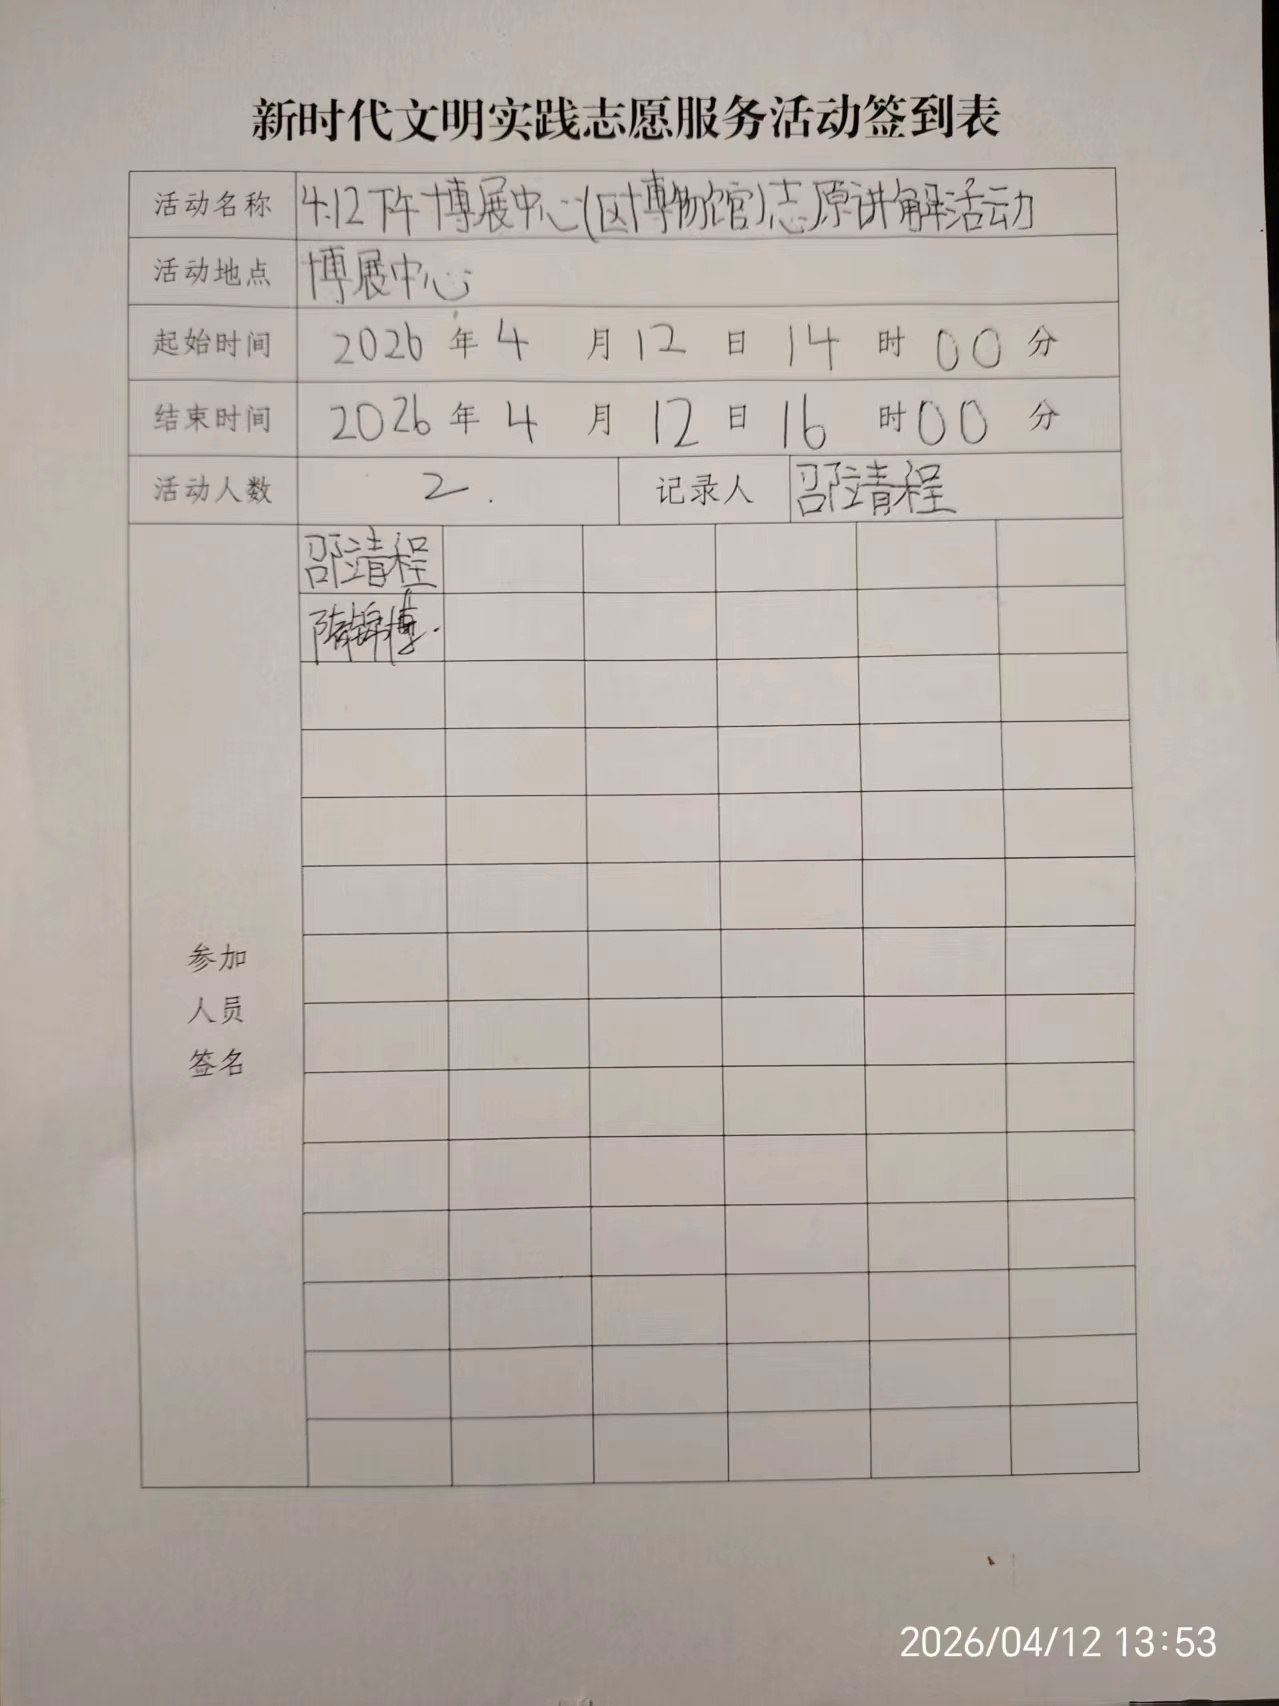 新时代文明实践志愿服务活动签到表
活动名称 4.12下午博展中心(区博物馆)志原讲解活动
活动地点 博展中心
起始时间 2026年4月12日14时00分
结束时间 2026年4月12日16时00分
活动人数 2. 记录人 邵靖程
邵靖程
锦博.
参加
人员
签名
2026/04/12 13:53